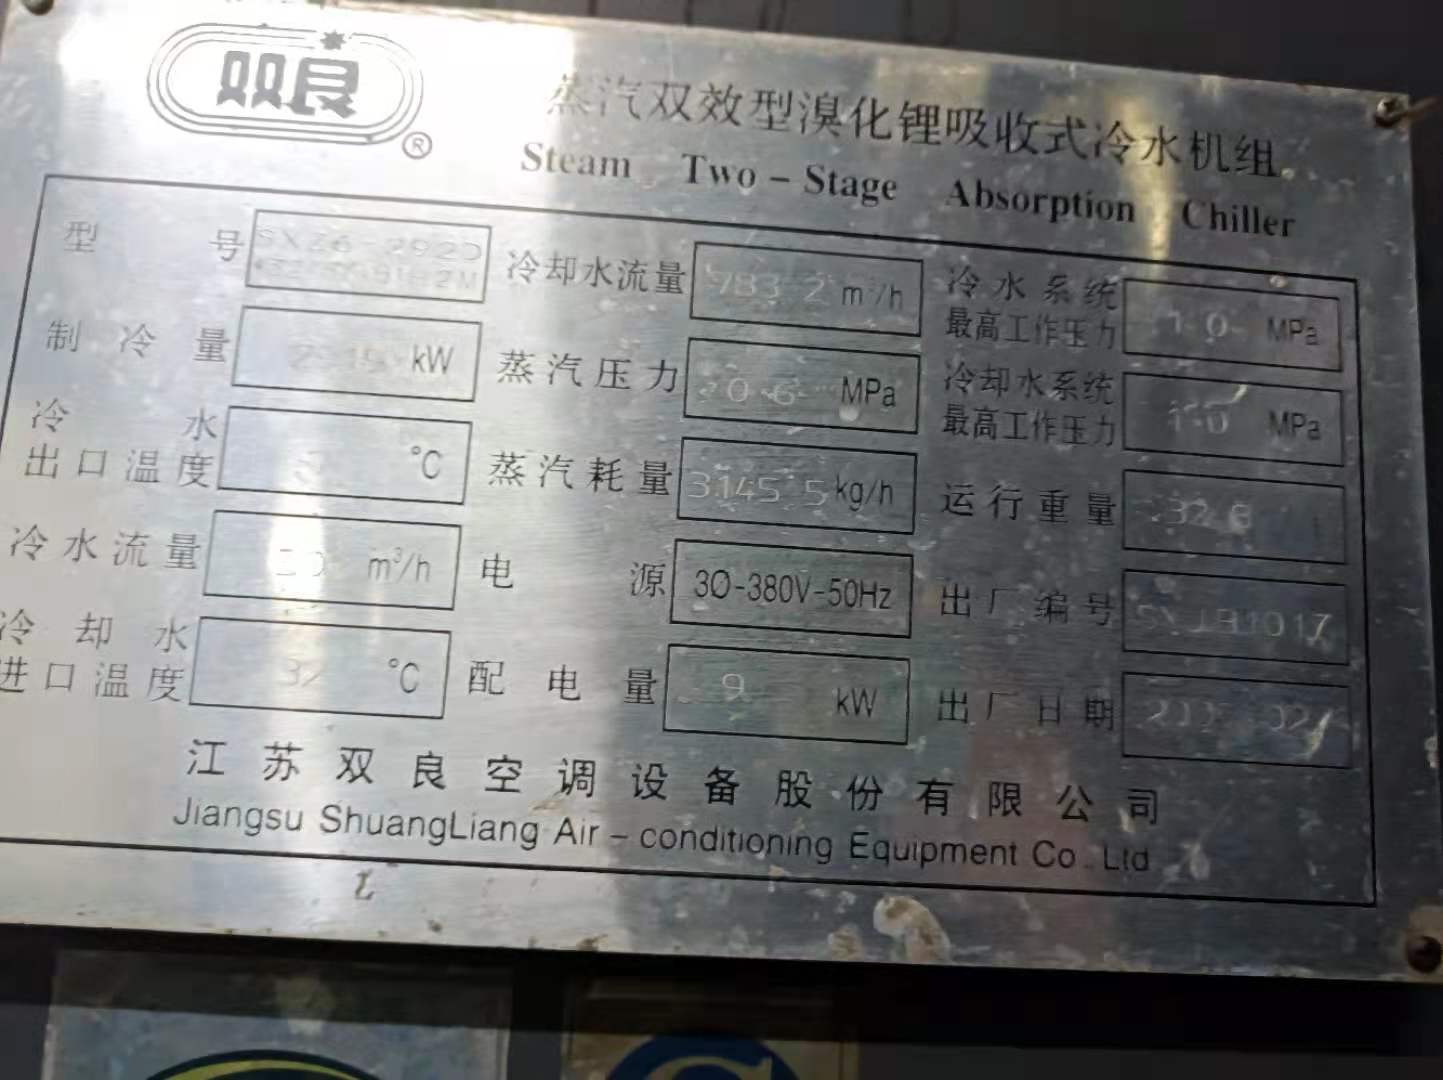 双良®
蒸汽双效型溴化锂吸收式冷水机组
Steam Two-Stage Absorption Chiller
型号 SXZ6-292D
冷却水流量 783 2 m³/h
冷水系统
最高工作压力 1 0 MPa
制冷量 kW
蒸汽压力 0 6 MPa
冷却水系统
最高工作压力 1 0 MPa
冷水
出口温度 ℃
蒸汽耗量 3145 5 kg/h
运行重量 32 8
冷水流量 m³/h
电源 3O-380V-50Hz
出厂编号
冷却水
进口温度 32 ℃
配电量 9 kW
出厂日期
江苏双良空调设备股份有限公司
Jiangsu ShuangLiang Air-conditioning Equipment Co. Ltd